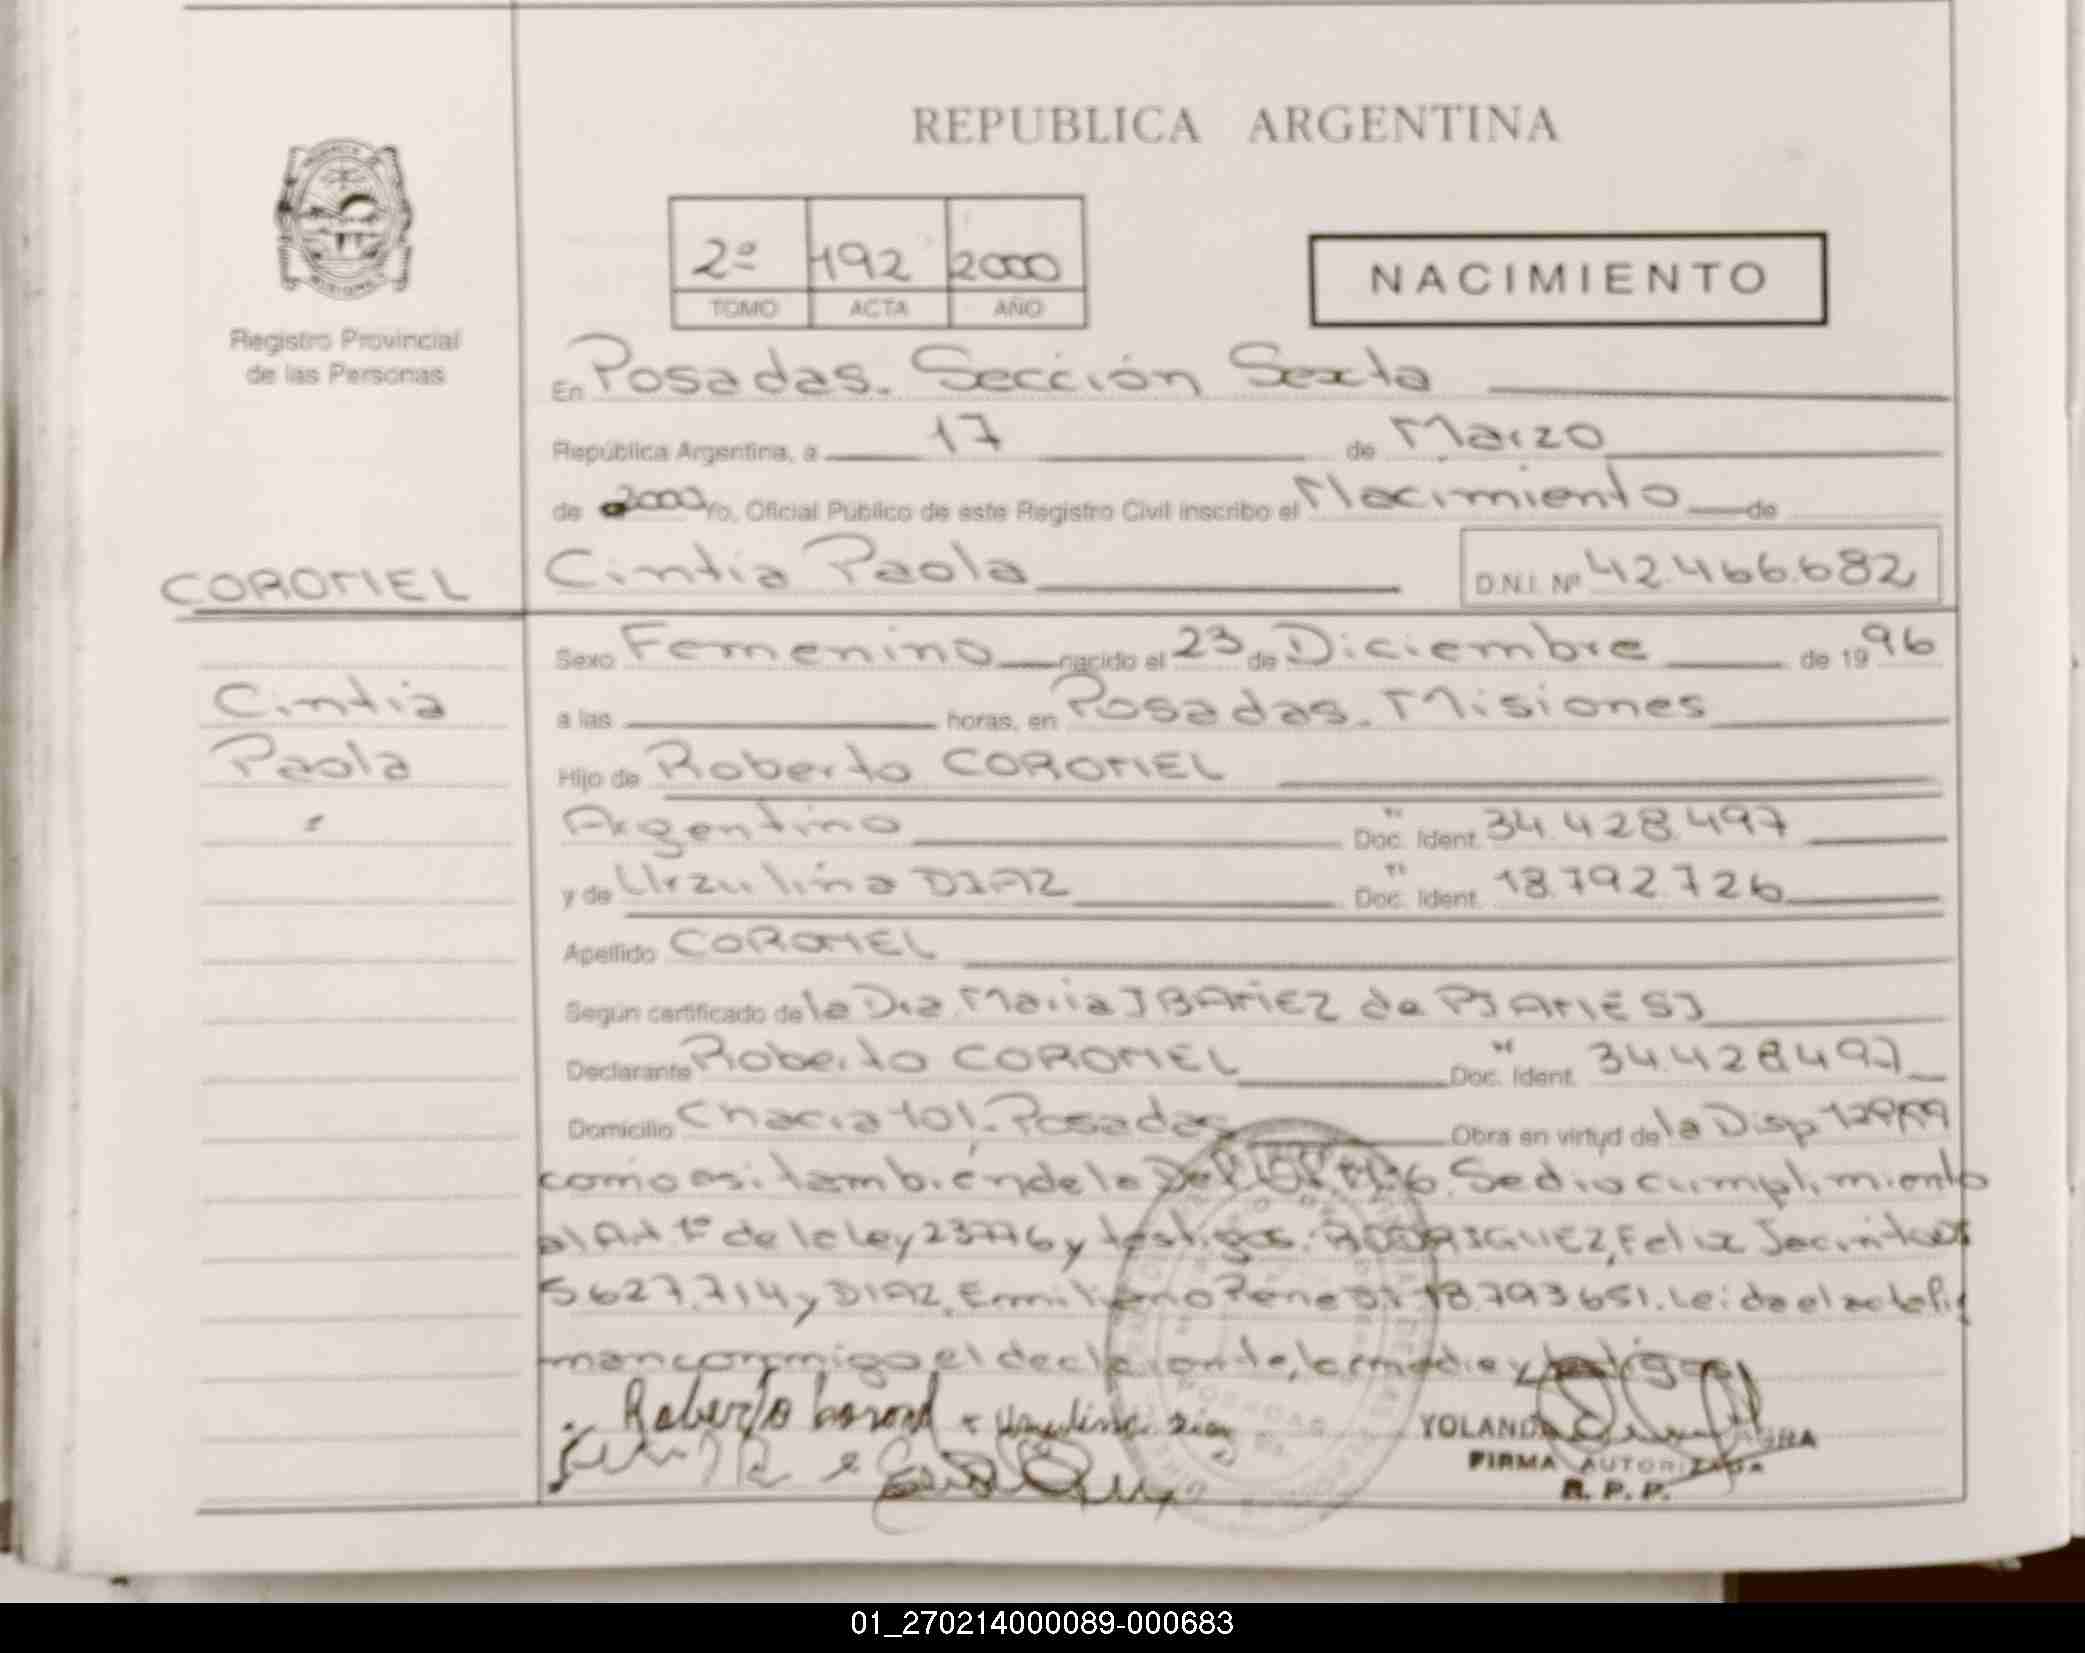 REPUBLICA ARGENTINA
2º 192 2000
TOMO ACTA AÑO
NACIMIENTO
Registro Provincial
de las Personas
En Posadas. Sección Sexta
República Argentina, a 17 de Marzo
de 2000 Yo, Oficial Público de este Registro Civil inscribo el Nacimiento de
CORONEL
Cintia Paola D.N.I. Nº 42.466.682
Sexo Femenino nacido el 23 de Diciembre de 1996
Cintia
a las horas, en Posadas. Misiones
Paola
Hijo de Roberto CORONEL
Argentino Doc. Ident. 34.428.497
y de Urzulina DIAZ Doc. Ident. 18.792.726
Apellido CORONEL
Según certificado de la Dra. Maria IBAÑEZ de PIANESI
Declarante Roberto CORONEL Doc. Ident. 34.428.497
Domicilio Chacra 101. Posadas Obra en virtud de la Disp
como asi también de la Se dio cumplimiento
al Art. 1º de la Ley 23776 y testigos: RODRIGUEZ, Felix Jacinto
5.627.714 y DIAZ, Emiliano Rene 18.793651. Leida el acta fir
man conmigo el declarante, la madre y testigos
Roberto Coronel Urzulina Diaz
YOLANDA
FIRMA AUTORIZADA
R. P. P.
01_270214000089-000683